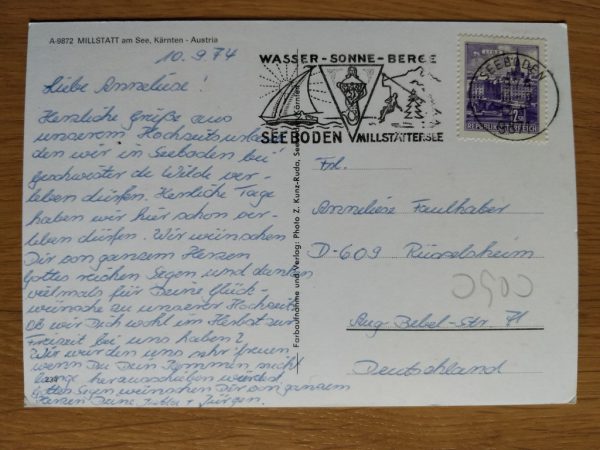 A-9872 MILLSTATT am See, Kärnten - Austria
10.9.74
Liebe Anneliese!
Herzliche Grüße aus
unserem Hochzeitsurlaub
den wir in Seeboden bei
Geschwister de Wilde ver-
leben dürfen. Herrliche Tage
haben wir hier schon ver-
leben dürfen. Wir wünschen
Dir von ganzem Herzen
Gottes reichen Segen und danken
vielmals für Deine Glück-
wünsche zu unserer Hochzeit.
Ob wir Dich wohl im Herbst zur
Freizeit bei uns haben?
Wir würden uns sehr freuen,
wenn Du Dein Kommen nicht
lange herausschieben würdest
Gottes Segen wünschen Dir von ganzem
Herzen Deine + Jürgen.
Farbaufnahme und Verlag: Photo Z. Kunz-Ruda, Kärnten
WASSER-SONNE-BERGE
SEEBODEN MILLSTÄTTERSEE
SEEBODEN
REPUBLIK ÖSTERREICH
Frl.
Anneliese Faulhaber
D-609 Rüsselsheim
Aug. Bebel-Str. 71
Deutschland